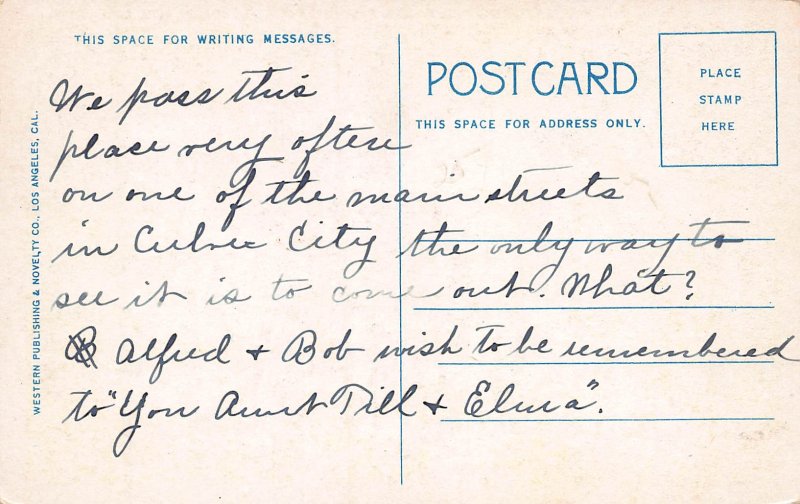 THIS SPACE FOR WRITING MESSAGES.
POSTCARD
THIS SPACE FOR ADDRESS ONLY.
PLACE
STAMP
HERE
WESTERN PUBLISHING & NOVELTY CO., LOS ANGELES, CAL.
We pass this
place very often
on one of the main streets
in Culver City the only way to
see it is to come out. What?
Alfred + Bob wish to be remembered
to "You Aunt Till + Elma".